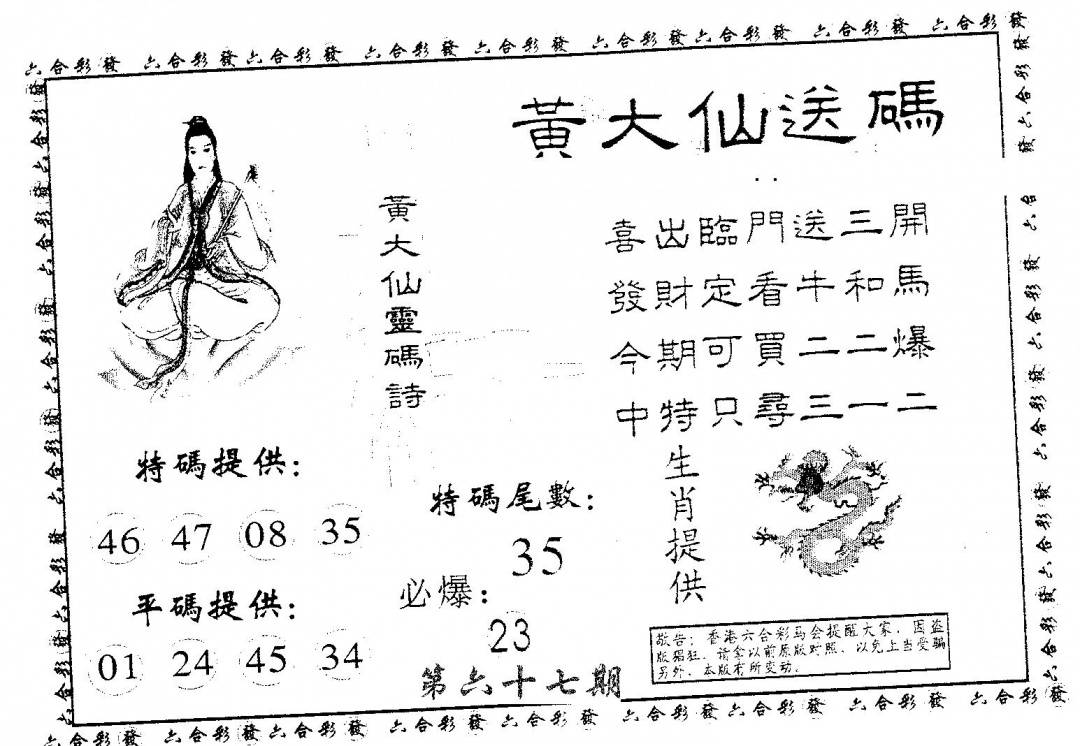 六合彩發 六合彩發六合彩發 六合彩發 六合彩發 六合彩發六合彩發 六合彩發 六合彩發
黃大仙送碼
黃大仙靈碼詩
喜出臨門送三開
發財定看牛和馬
今期可買二二爆
中特只尋三一二
特碼提供：
46 47 08 35
平碼提供：
01 24 45 34
特碼尾數：
35
必爆：
23
第六十七期
生肖提供
敬告：香港六合彩马会提醒大家，因盗
版猖狂，请拿以前原版对照，以免上当受骗
另外，本版有所变动。
六合彩發 六合彩發六合彩發 六合彩發 六合彩發 六合彩發六合彩發 六合彩發 六合彩發